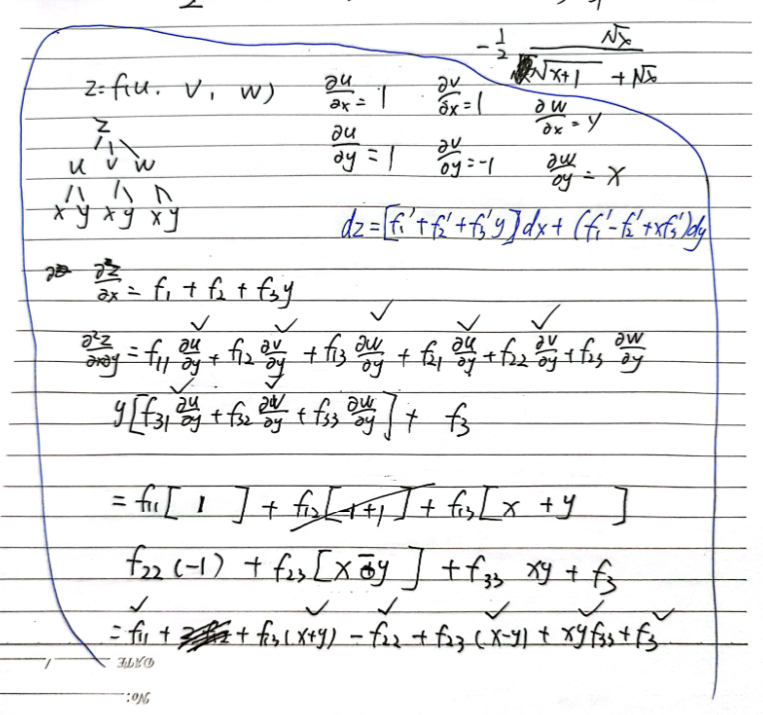 -1/2 √x / (√(x+1) + √x)
z = f(u, v, w) ∂u/∂x = 1 ∂v/∂x = 1 ∂w/∂x = y
z
u v w ∂u/∂y = 1 ∂v/∂y = -1 ∂w/∂y = x
x y x y x y
dz = [f₁' + f₂' + f₃'y]dx + (f₁' - f₂' + xf₃')dy
∂z/∂x = f₁ + f₂ + f₃y
∂²z/∂x∂y = f₁₁ ∂u/∂y + f₁₂ ∂v/∂y + f₁₃ ∂w/∂y + f₂₁ ∂u/∂y + f₂₂ ∂v/∂y + f₂₃ ∂w/∂y
y[f₃₁ ∂u/∂y + f₃₂ ∂v/∂y + f₃₃ ∂w/∂y] + f₃
= f₁₁[1] + f₁₂[-1+1] + f₁₃[x + y]
f₂₂(-1) + f₂₃[x - y] + f₃₃ xy + f₃
= f₁₁ + f₁₃(x+y) - f₂₂ + f₂₃(x-y) + xyf₃₃ + f₃
DATE
No: